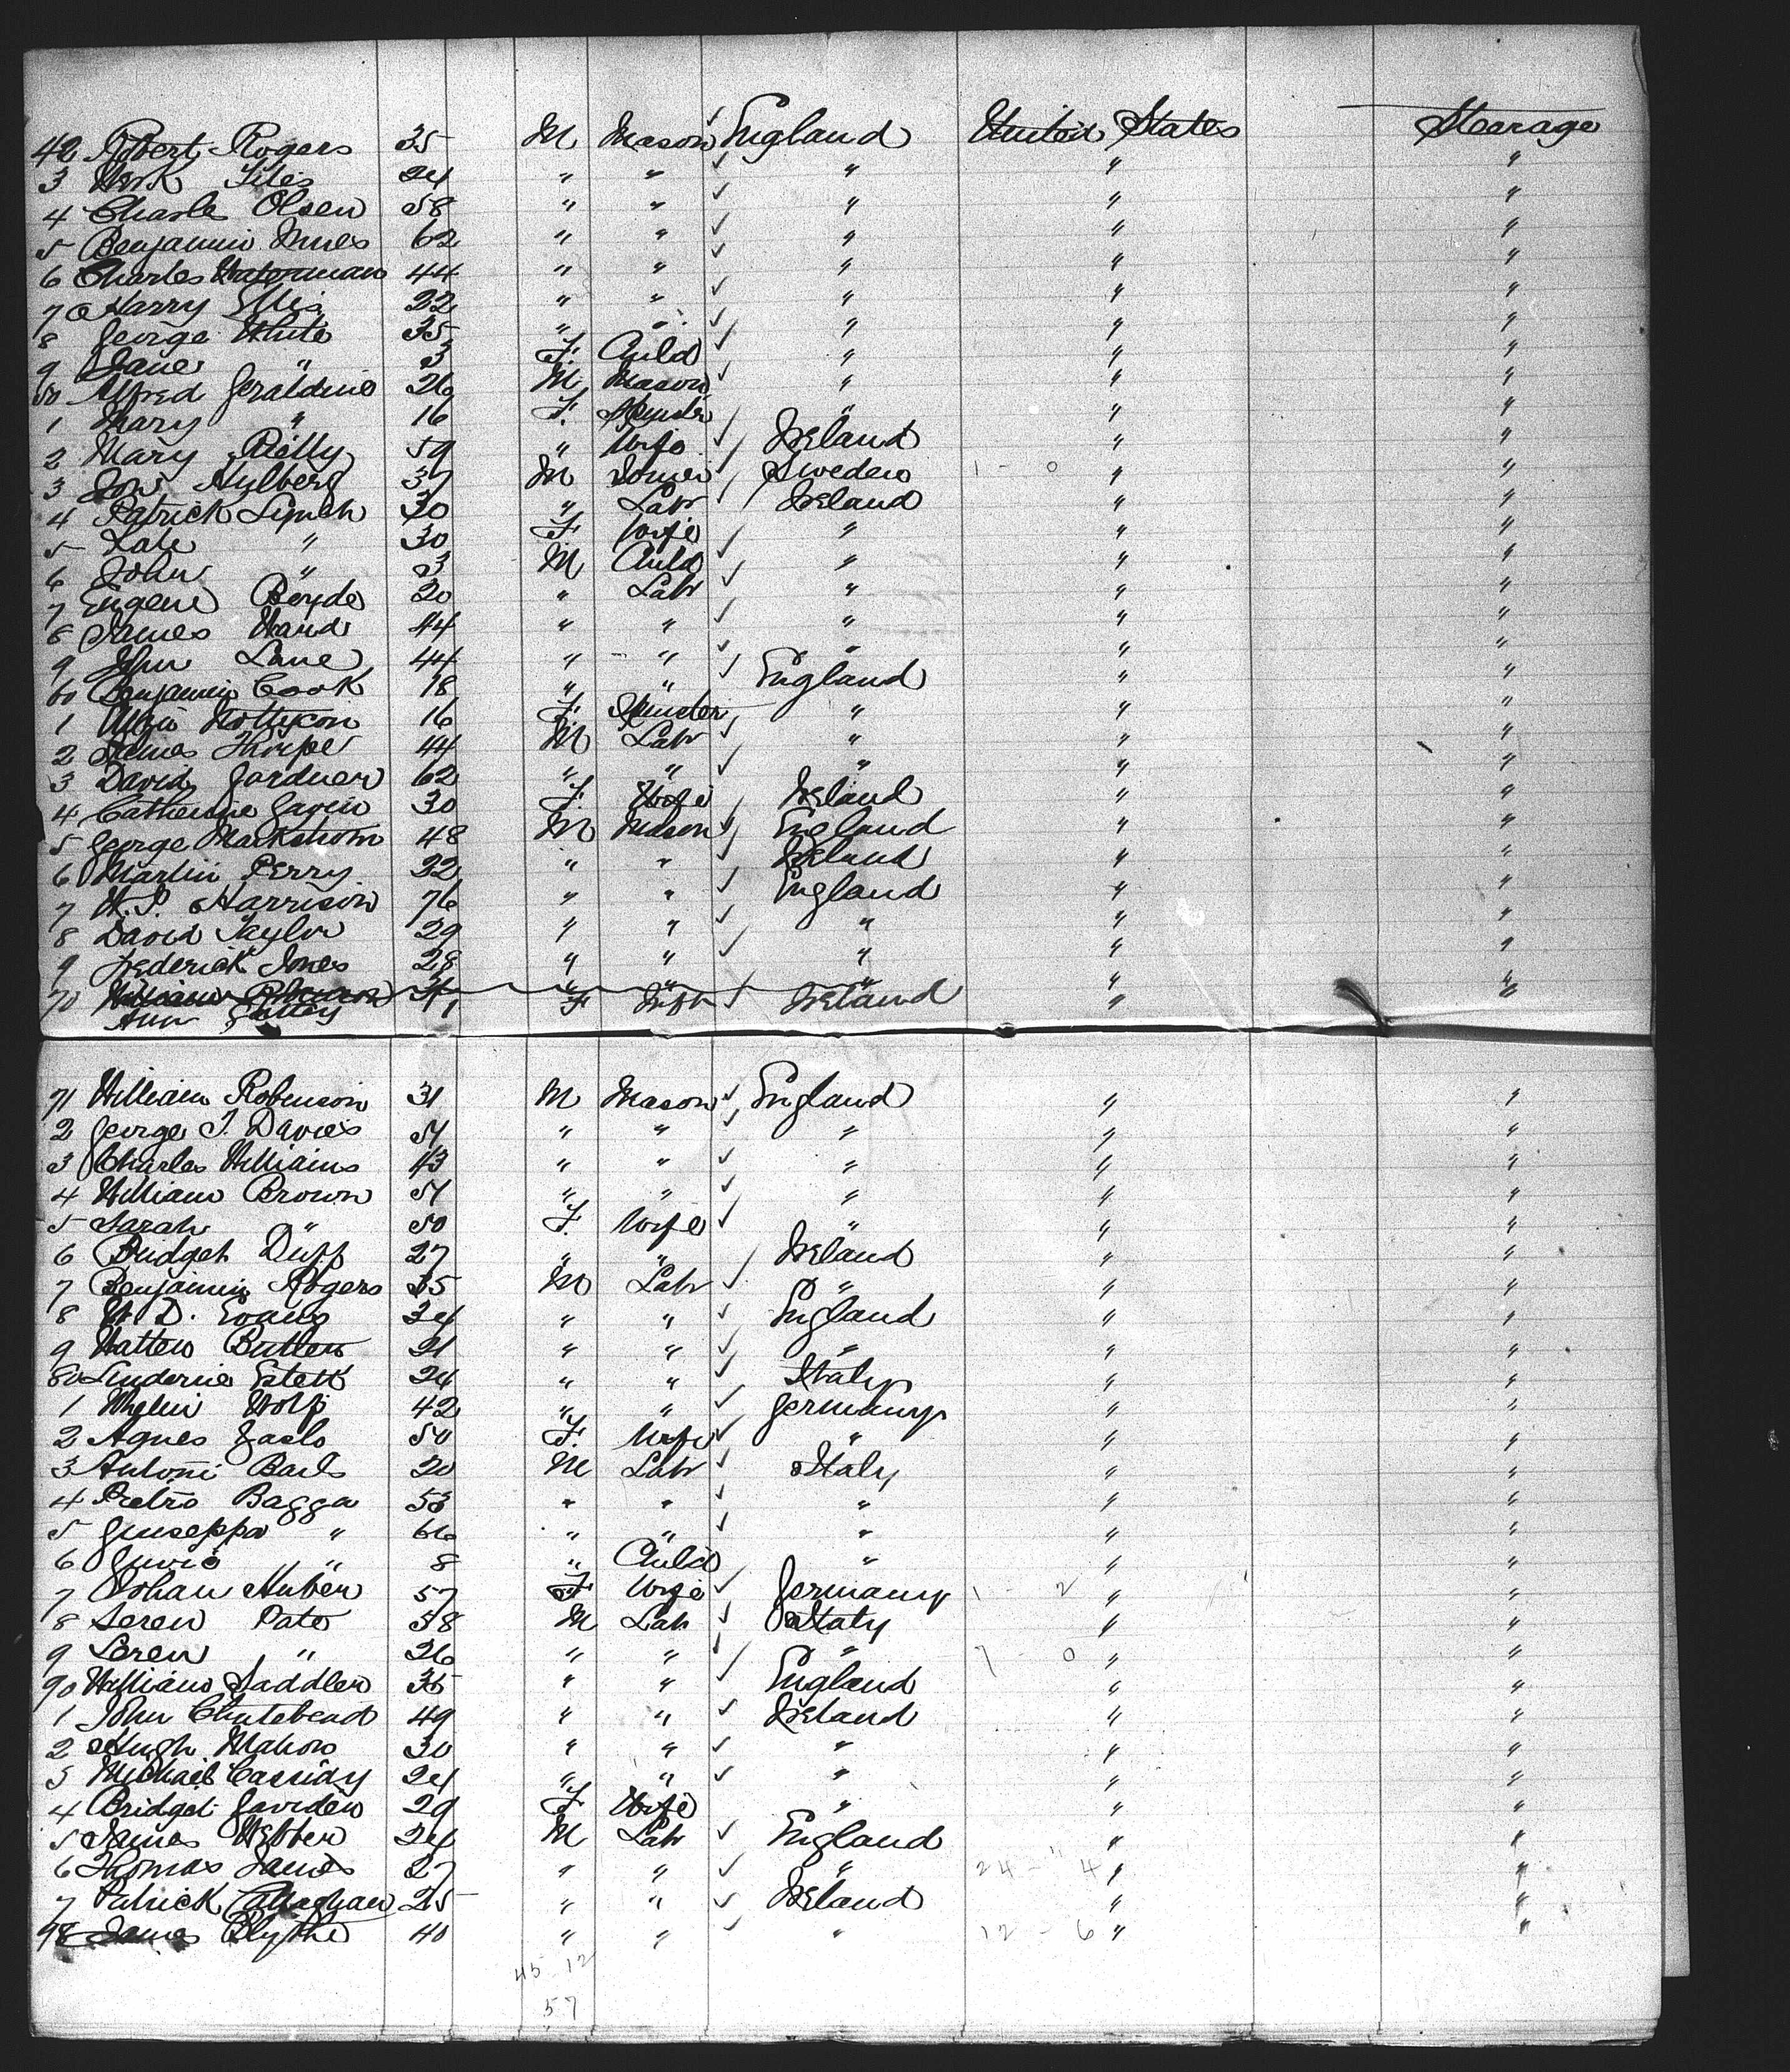 42 Robert Rogers 35 M Mason ✓ England United States Steerage
3 Giles 24 " " ✓ " " "
4 Charles Olsen 58 " " ✓ " " "
5 Benjamin 62 " " ✓ " " "
6 Charles Waterman 44 " " ✓ " " "
7 Harry Ellis 22 " " ✓ " " "
8 George White 35 " " ✓ " " "
9 Jane " 3 F. Child ✓ " " "
50 Alfred Geraldine 26 M Mason ✓ " " "
1 Mary " 16 F. Spinster ✓ " " "
2 Mary Reilly 59 " Wife ✓ Ireland " "
3 Hylberg 37 M ✓ Sweden 1 - 0 " "
4 Patrick Lynch 30 " Labr ✓ Ireland " "
5 Kate " 30 F Wife ✓ " " "
6 John " 3 M Child ✓ " " "
7 Eugene 20 " Labr ✓ " " "
8 James Ward 44 " " ✓ " " "
9 John Lane 44 " " ✓ " " "
60 Benjamin Cook 18 " " ✓ England " "
1 16 F. Spinster ✓ " " "
2 James Thorpe 44 M Labr ✓ " " "
3 David Gardner 62 " " ✓ " " "
4 Catherine Gavin 30 F. Wife ✓ Ireland " "
5 George Markstrom 48 M Mason ✓ England " "
6 Martin Perry 22 " " ✓ Ireland " "
7 Harrison 76 " " ✓ England " "
8 David Taylor 29 " " ✓ " " "
9 Frederick Jones 28 " " ✓ " " "
70 William Robinson 31 " " " " "
Ann F ✓ Ireland " "
71 William Robinson 31 M Mason ✓ England " "
2 George T. Davies 51 " " ✓ " " "
3 Charles Williams 43 " " ✓ " " "
4 William Brown 51 " " ✓ " " "
5 Sarah " 50 F. Wife ✓ " " "
6 Bridget Duff 27 " " ✓ Ireland " "
7 Benjamin Rogers 35 M Labr ✓ " " "
8 W. D. Evans 24 " " ✓ England " "
9 Butler 21 " " ✓ " " "
80 24 " " ✓ Italy " "
1 Wolf 42 " " ✓ Germany " "
2 Agnes 50 F. Wife ✓ " " "
3 Antoni 20 M Labr ✓ Italy " "
4 Pietro Bagga 53 " " ✓ " " "
5 Giuseppa " 66 " " ✓ " " "
6 " 8 " Child ✓ " " "
7 Johan Huber 57 F Wife ✓ Germany 1 - 2 " "
8 Seren Pato 58 M Labr ✓ Italy " "
9 Seren " 26 " " ✓ " 7 - 0 " "
90 William Saddler 35 " " ✓ England " "
1 John 49 " " ✓ Ireland " "
2 Hugh Mahon 30 " " ✓ " " "
3 Michael Cassidy 24 " " ✓ " " "
4 Bridget 29 F Wife " " "
5 James Webber 24 M Labr ✓ England " "
6 Thomas James 27 " " ✓ " 24 - 4 " "
7 Patrick Callaghan 25 " " ✓ Ireland " "
98 James Blythe 40 " " ✓ " 12 - 6 " "
45 12
57